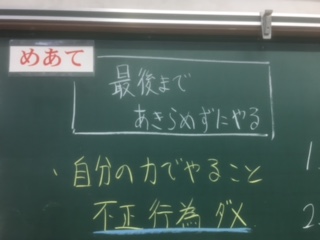 めあて
最後まで
あきらめずにやる
、自分の力でやること
不正行為ダメ
1.
2.